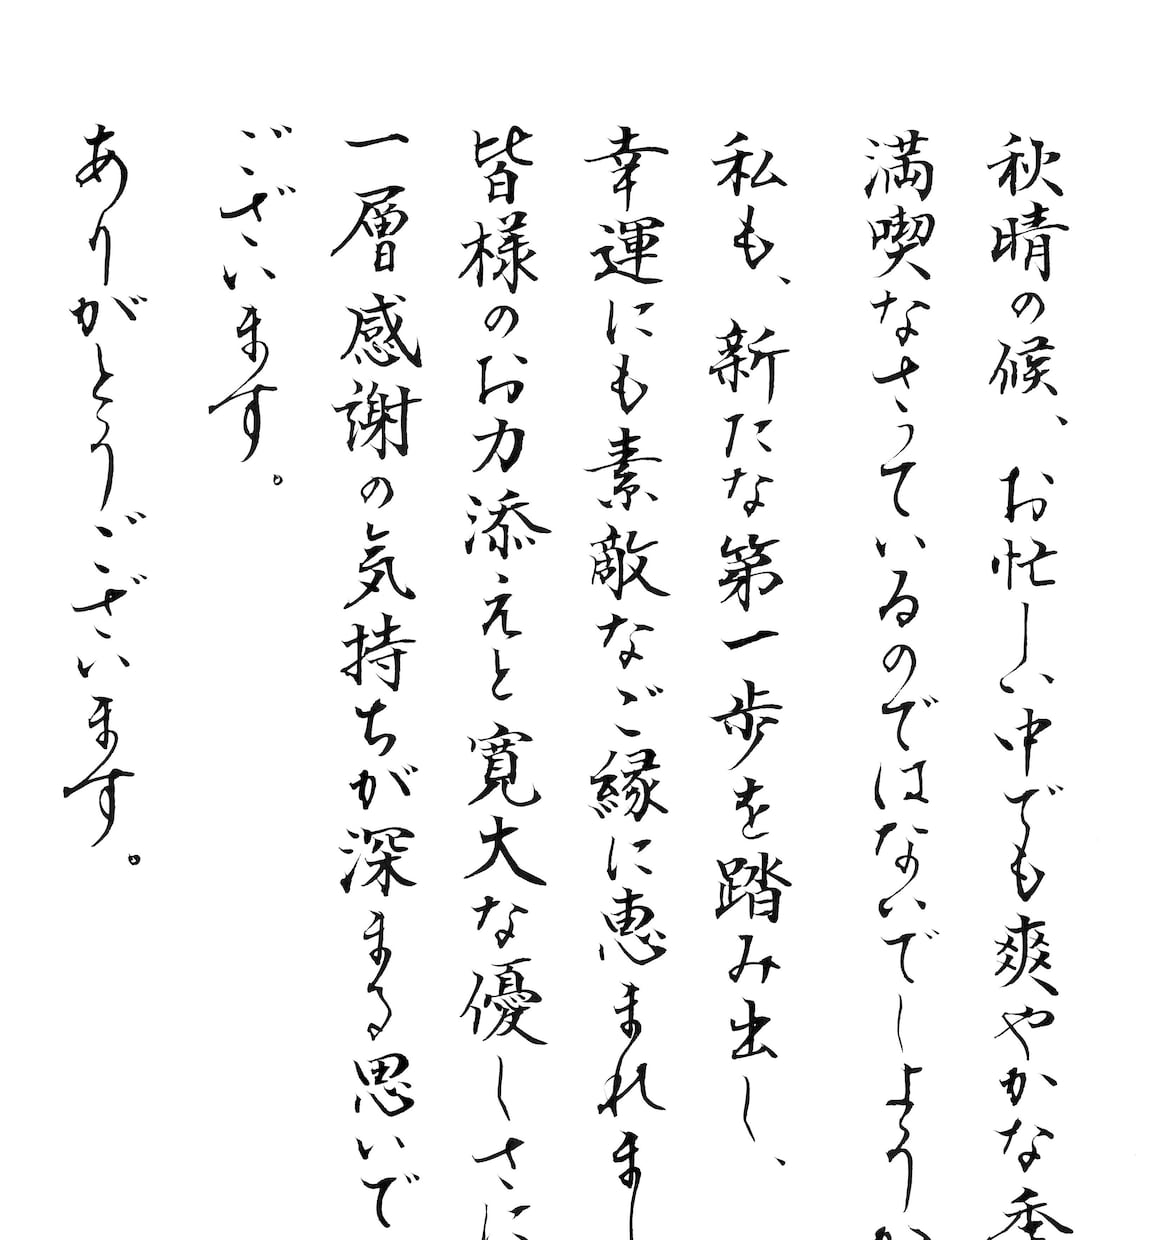 秋晴の候、お忙しい中でも爽やかな季
満喫なさっているのではないでしょうか
私も、新たな第一歩を踏み出し、
幸運にも素敵なご縁に恵まれまし
皆様のお力添えと寛大な優しさに
一層感謝の気持ちが深まる思いで
ございます。
ありがとうございます。